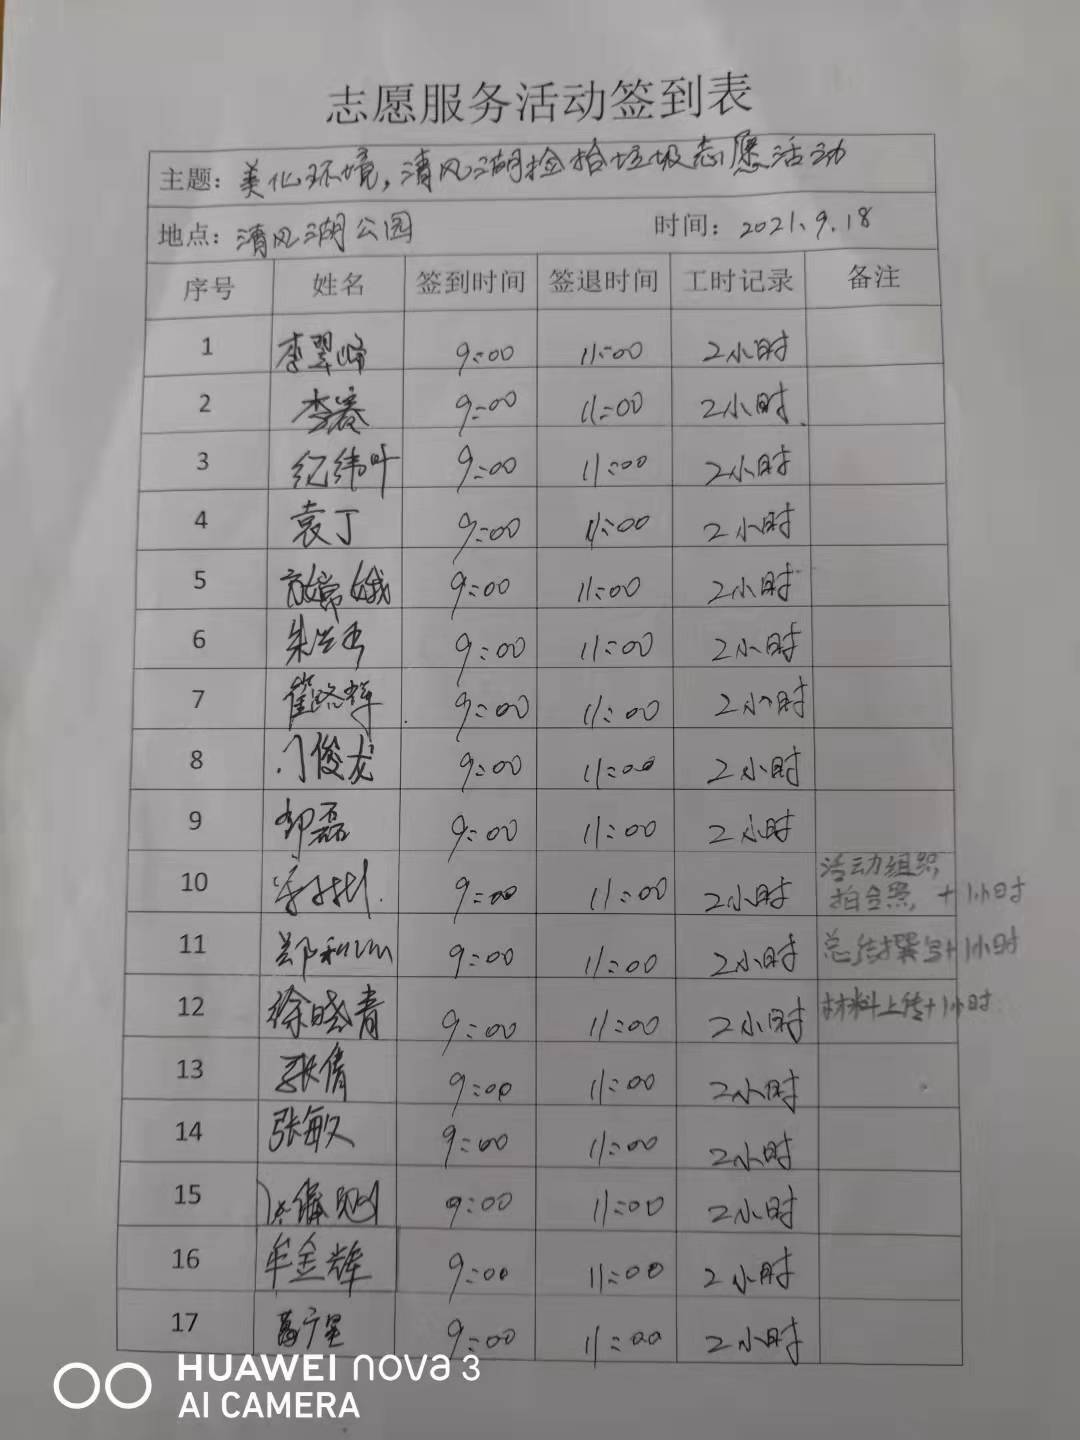 志愿服务活动签到表
主题：美化环境，清风湖捡拾垃圾志愿活动
地点：清风湖公园 时间：2021.9.18
序号 姓名 签到时间 签退时间 工时记录 备注
1 李翠峰 9:00 11:00 2小时
2 李 9:00 11:00 2小时.
3 纪纬叶 9:00 11:00 2小时
4 袁丁 9:00 11:00 2小时
5 嫦娥 9:00 11:00 2小时
6 朱 9:00 11:00 2小时
7 崔 9:00 11:00 2小时
8 门俊龙 9:00 11:00 2小时
9 磊 9:00 11:00 2小时
10 9:00 11:00 2小时 活动组织，
拍合照，+1小时
11 郑 9:00 11:00 2小时 总结撰写+1小时
12 徐晓青 9:00 11:00 2小时 材料上传+1小时
13 张倩 9:00 11:00 2小时
14 张敏 9:00 11:00 2小时
15 9:00 11:00 2小时
16 牟金辉 9:00 11:00 2小时
17 9:00 11:00 2小时
HUAWEI nova 3
AI CAMERA